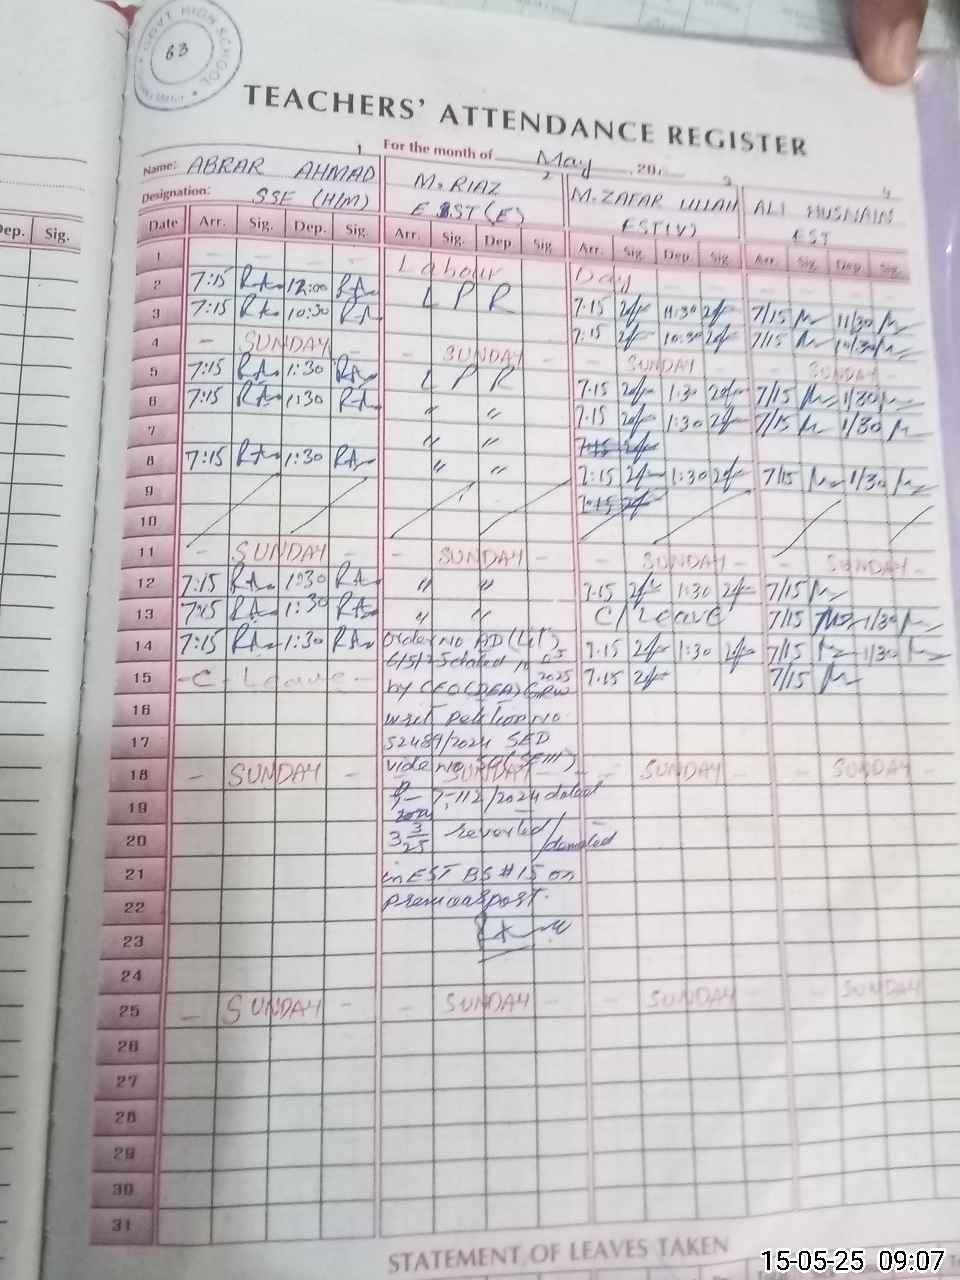 GOVT. HIGH SCHOOL
63
TEACHERS' ATTENDANCE REGISTER
For the month of May 20
1 2 3 4
Name: ABRAR AHMAD M. RIAZ M. ZAFAR ULLAH ALI HUSNAIN
Designation: SSE (H/M) EST (E) EST (V) EST
ep. Sig. Date Arr. Sig. Dep. Sig. Arr. Sig. Dep Sig Arr. Sig. Dep Sig Arr. Sig Dep Sig.
1 - - - - Labour Day - - - -
2 7:15 RA 12:00 RA L P R 7.15 11:30 7/15 11/30
3 7:15 RA 10:30 RA 7.15 10:30 7/15 10/30
4 - SUNDAY - - SUNDAY SUNDAY SUNDAY
5 7:15 RA 1:30 RA L P R 7.15 1:30 7/15 1/30
6 7:15 RA 1:30 RA " " 7.15 1:30 7/15 1/30
7 " " 7.15
8 7:15 RA 1:30 RA " " 7:15 1:30 7/15 1/30
9 7.15
10
11 - SUNDAY - - SUNDAY - - SUNDAY - - SUNDAY
12 7:15 RA 1:30 RA " " 7.15 1:30 7/15
13 7:15 RA 1:30 RA " " C/Leave 7/15 1/30
14 7:15 RA 1:30 RA order No AD (Lit) 7.15 1:30 7/15 1/30
15 - C - Leave - 7.15 7/15
by CEO (DEA) GRW
2025
16 writ petition no
17 52489/2024 SED
vide no
18 - SUNDAY - - SUNDAY - - SUNDAY - - SUNDAY
19 7-112/2024 dated
2024
20 3 3/25 reverted/
21 in EST BS #15 on
22 previous post.
23
24
25 - SUNDAY - - SUNDAY - - SUNDAY - - SUNDAY
26
27
28
29
30
31
STATEMENT OF LEAVES TAKEN
15-05-25 09:07